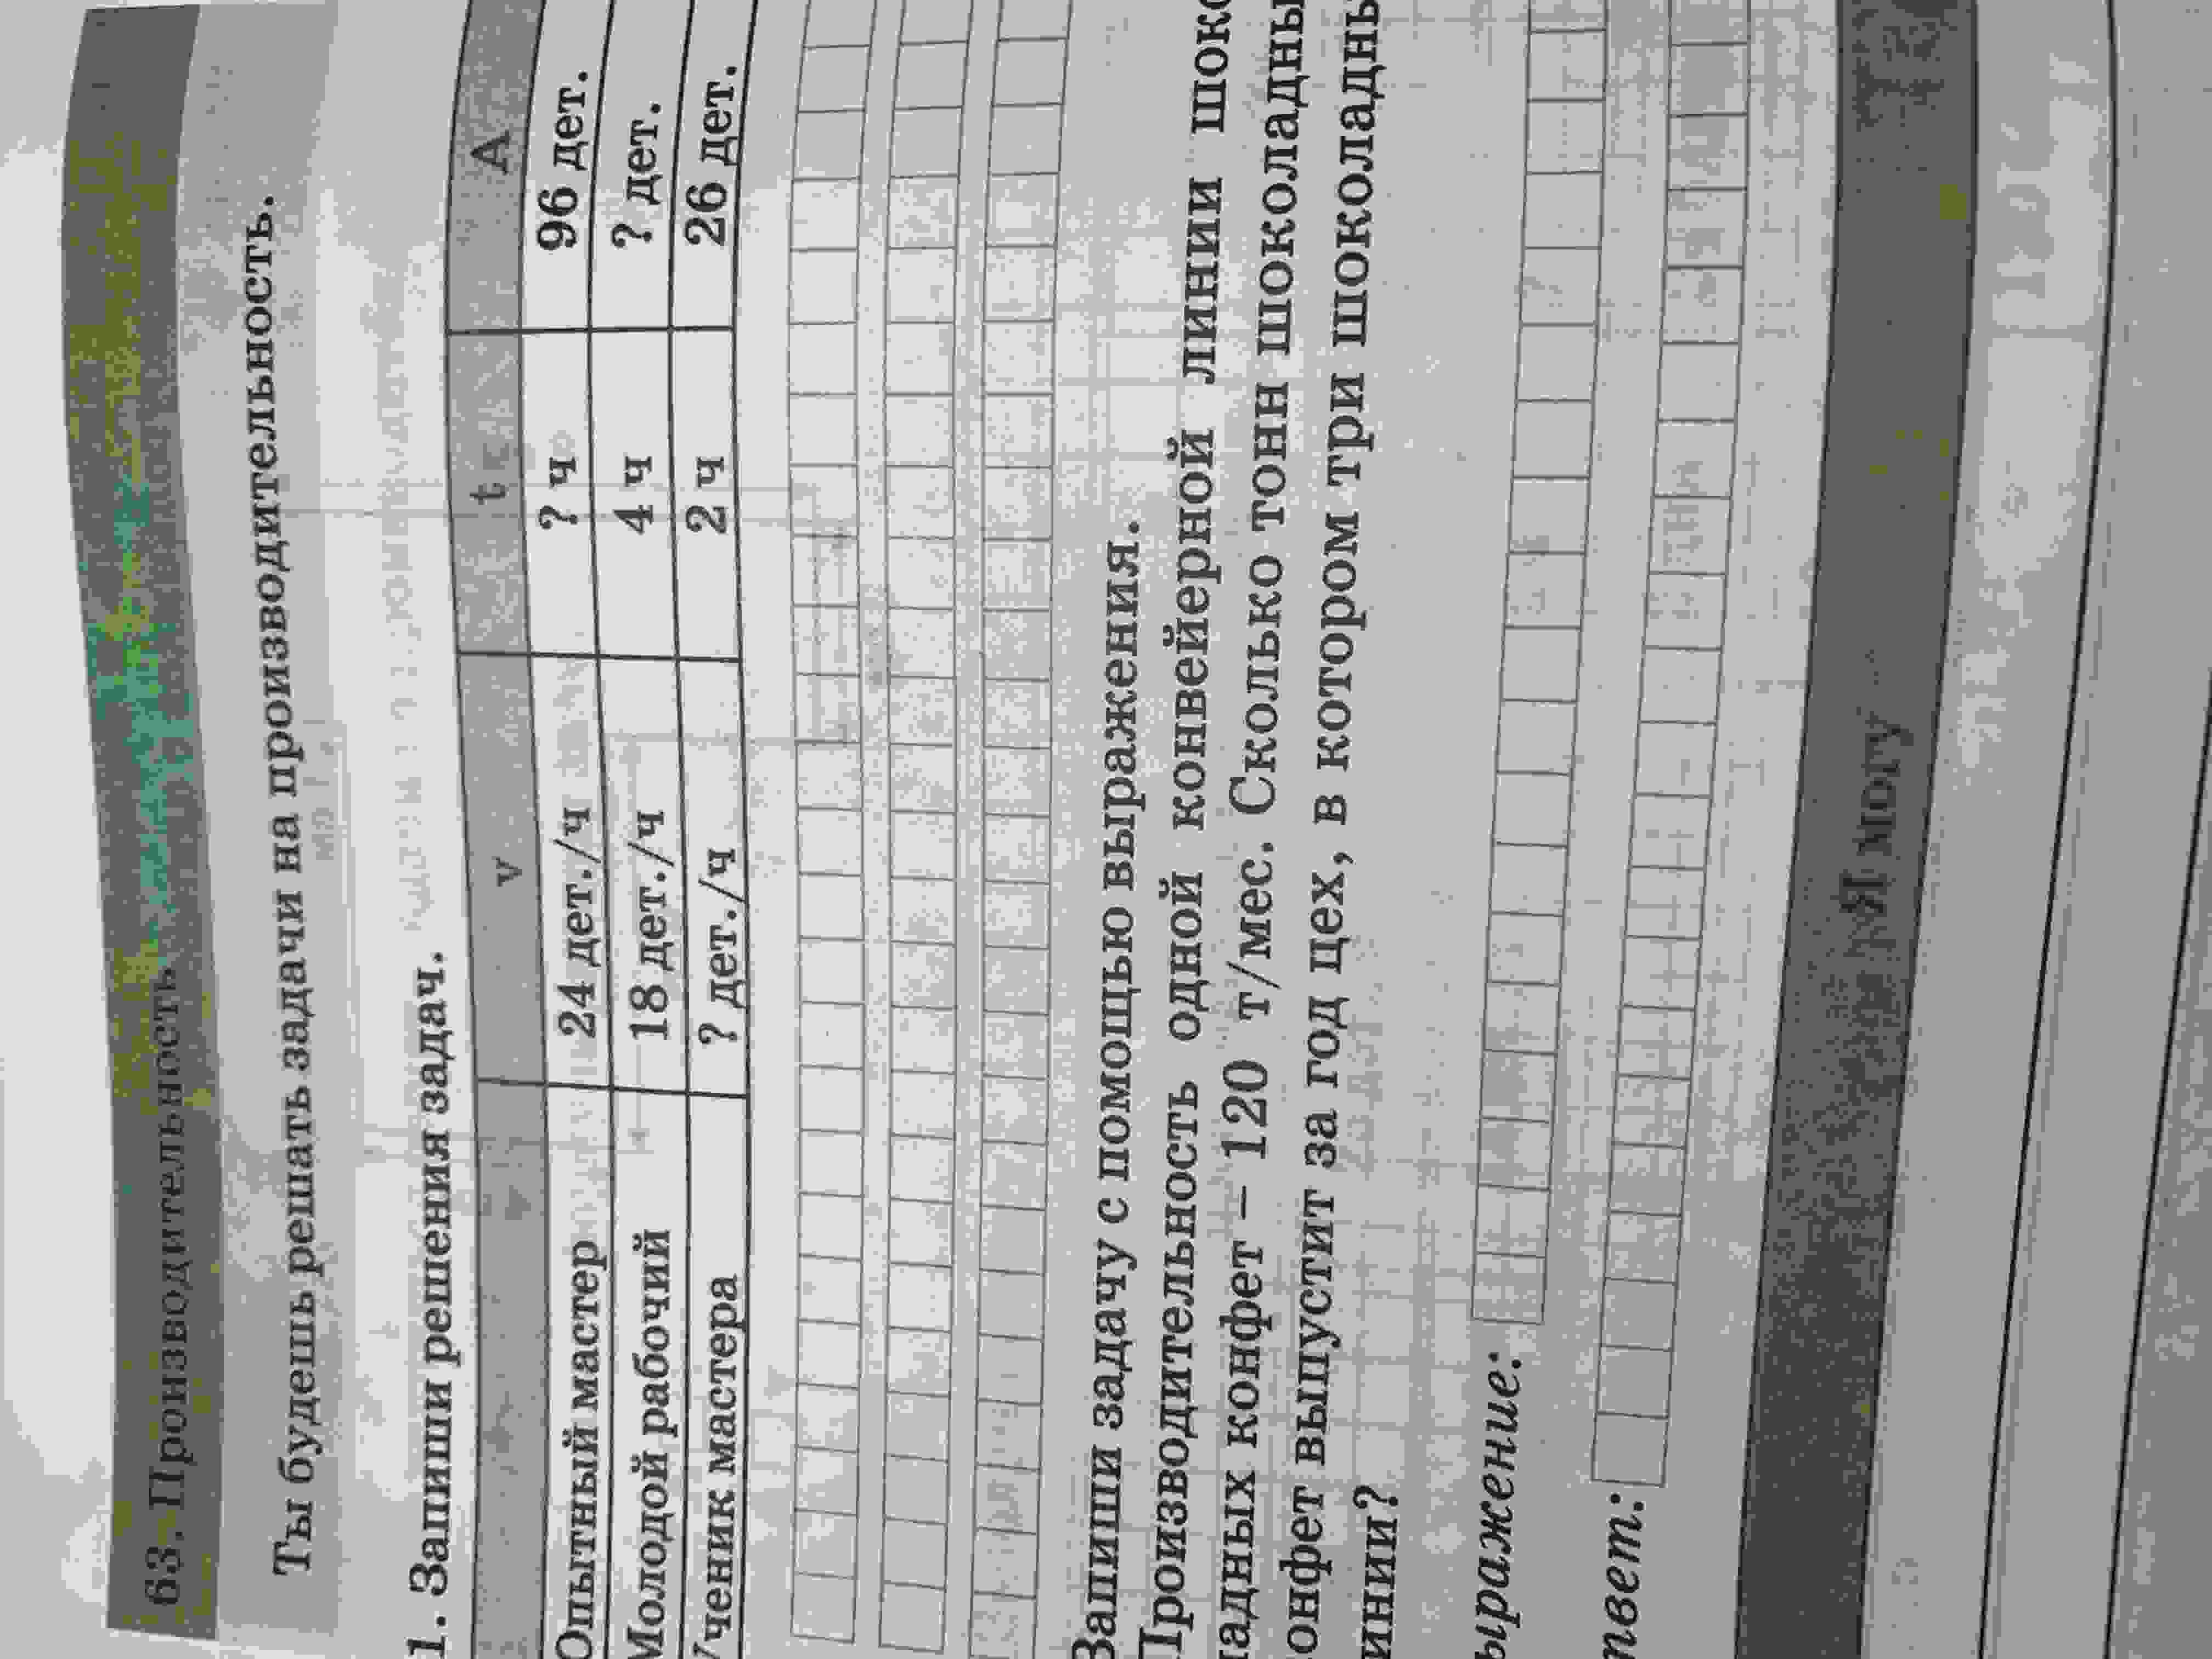 63. Производительность
Ты будешь решать задачи на производительность.
1. Запиши решения задач.
v t A
Опытный мастер 24 дет./ч ? ч 96 дет.
Молодой рабочий 18 дет./ч 4 ч ? дет.
Ученик мастера ? дет./ч 2 ч 26 дет.
Запиши задачу с помощью выражения.
Производительность одной конвейерной линии шоко
ладных конфет – 120 т/мес. Сколько тонн шоколадны
конфет выпустит за год цех, в котором три шоколадны
инии?
ыражение:
твет:
Я могу